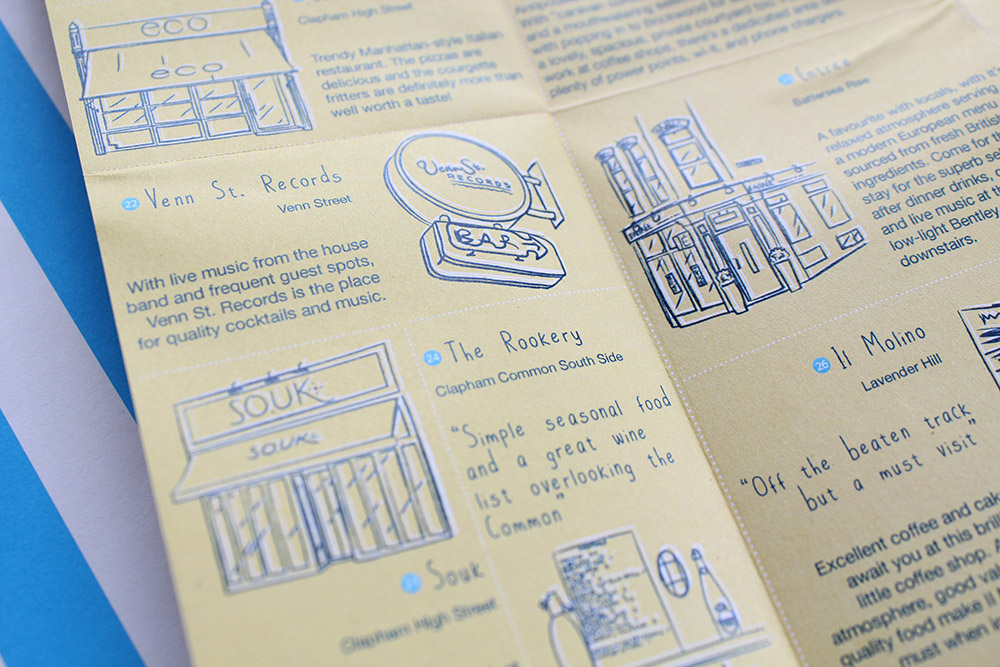 Clapham High Street
eco
eco
Trendy Manhattan-style Italian
restaurant. The pizzas are
delicious and the courgette
fritters are definitely more than
well worth a taste!
22 Venn St. Records
Venn Street
With live music from the house
band and frequent guest spots,
Venn St. Records is the place
for quality cocktails and music.
Venn St.
RECORDS
BAR
SOUK
SOUK
Souk
Clapham High Street
24 The Rookery
Clapham Common South Side
"Simple seasonal food
and a great wine
list overlooking the
Common"
with popping in to
a lovely, spacious, private courtyard too.
work at coffee shops, there's a dedicated area
plenty of power points, wi-fi, and phone chargers.
Battersea Rise
A favourite with locals, with
relaxed atmosphere serving
a modern European menu
sourced from fresh British
ingredients. Come for
stay for the superb
after dinner drinks,
and live music at
low-light Bentley
downstairs.
26 Il Molino
Lavender Hill
"Off the beaten track
but a must visit"
Excellent coffee and
await you at this
little coffee shop.
atmosphere, good
quality food make
must when